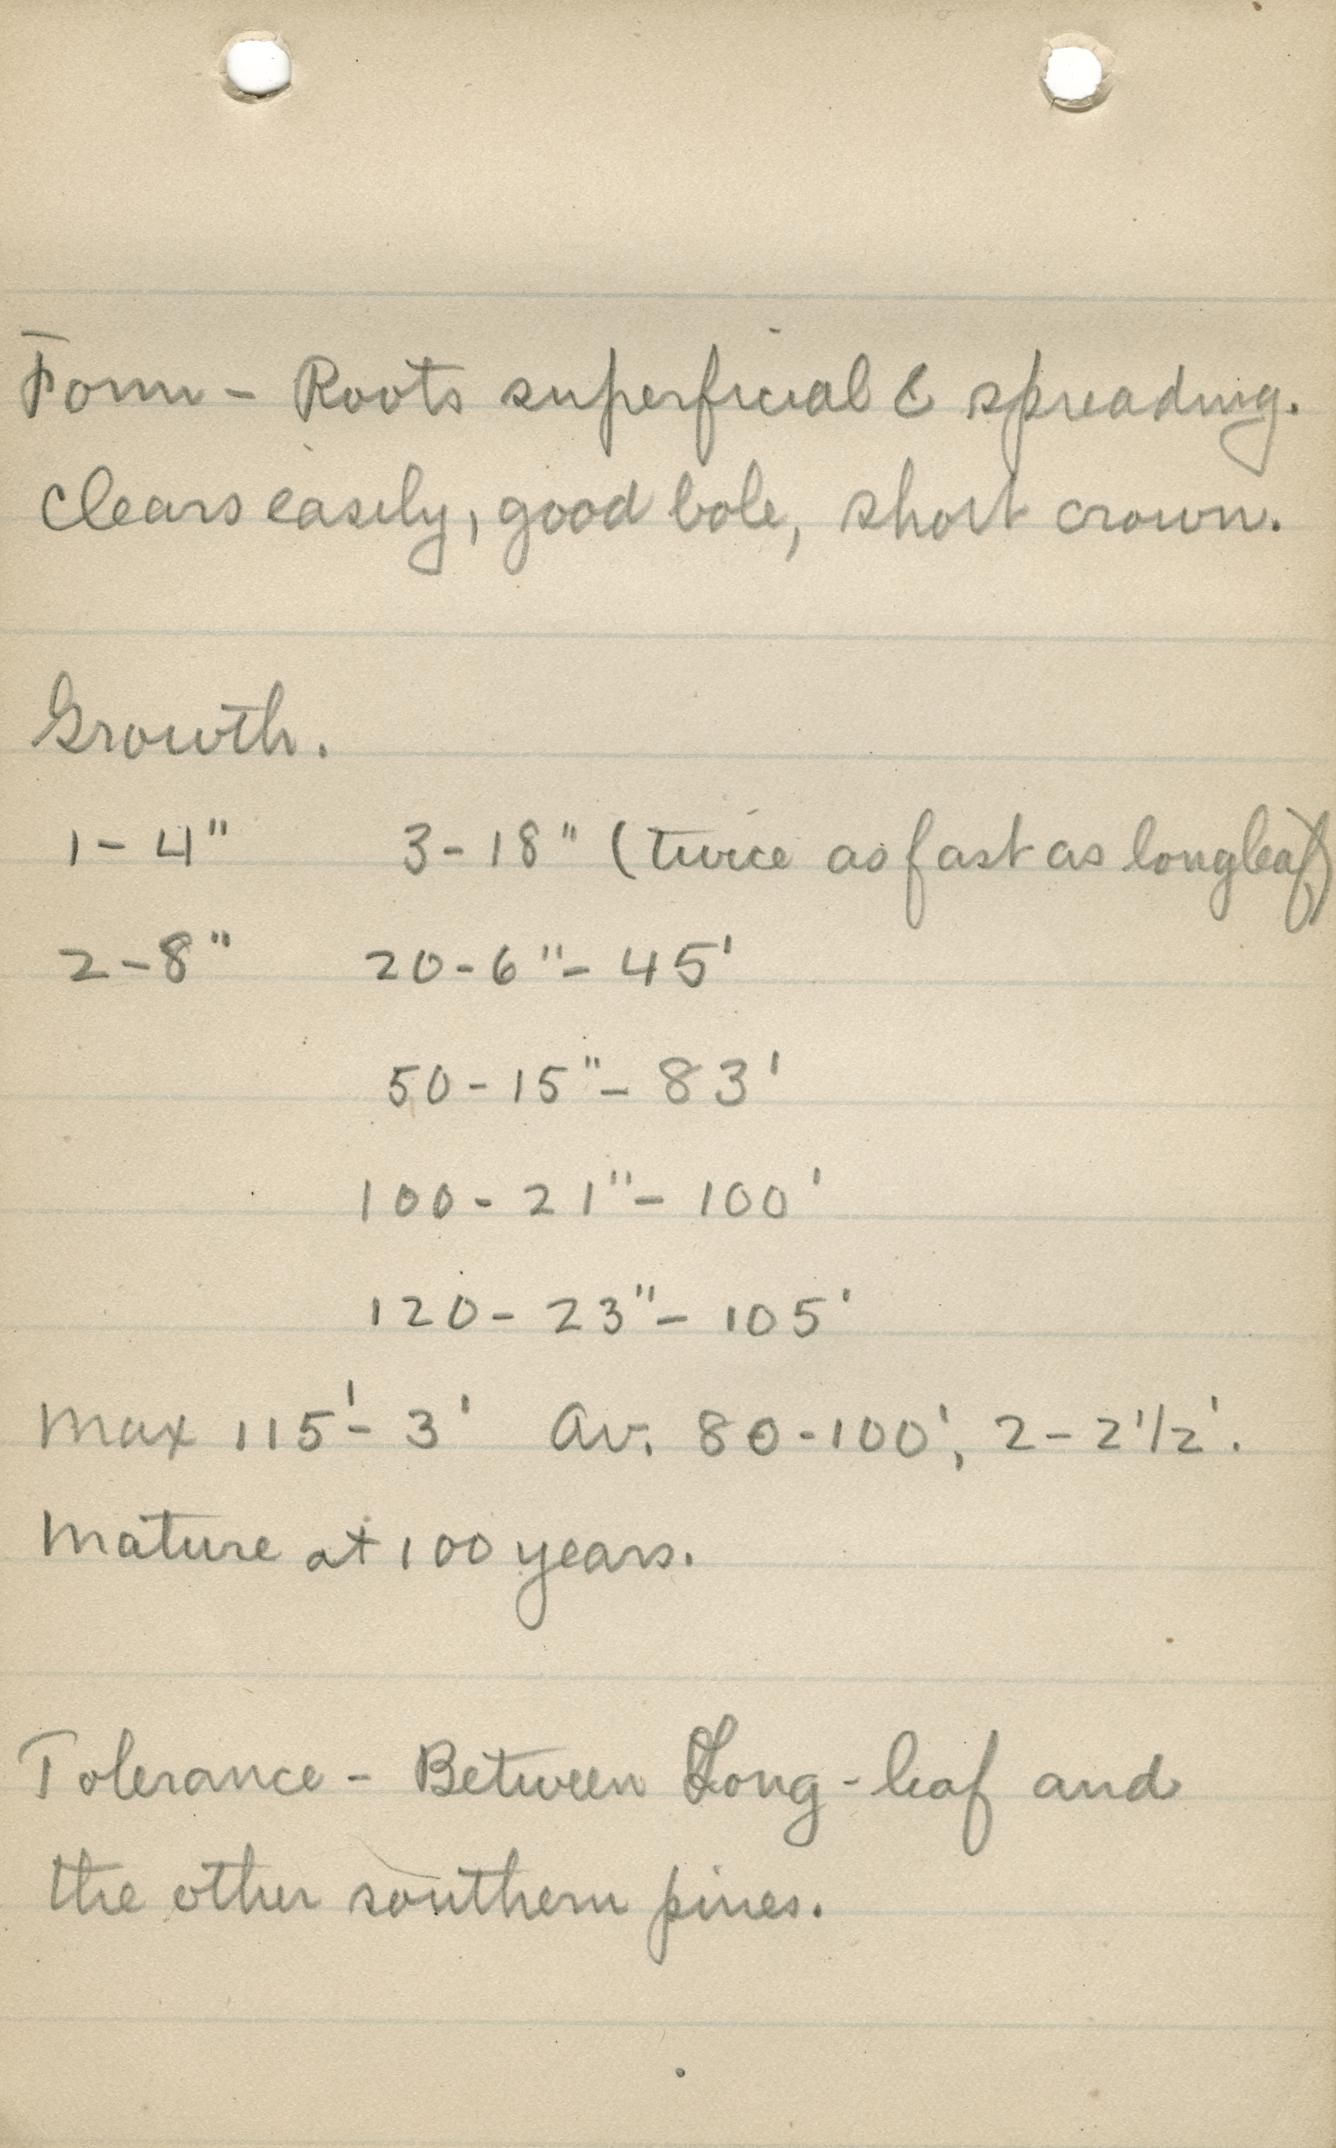 Form - Roots superficial & spreading.
Clears easily, good bole, short crown.
Growth.
1 - 4" 3 - 18" (twice as fast as longleaf)
2 - 8" 20 - 6" - 45'
50 - 15" - 83'
100 - 21" - 100'
120 - 23" - 105'
Max 115' - 3' Av. 80 - 100', 2 - 2 1/2'.
Mature at 100 years.
Tolerance - Between Long-leaf and
the other southern pines.